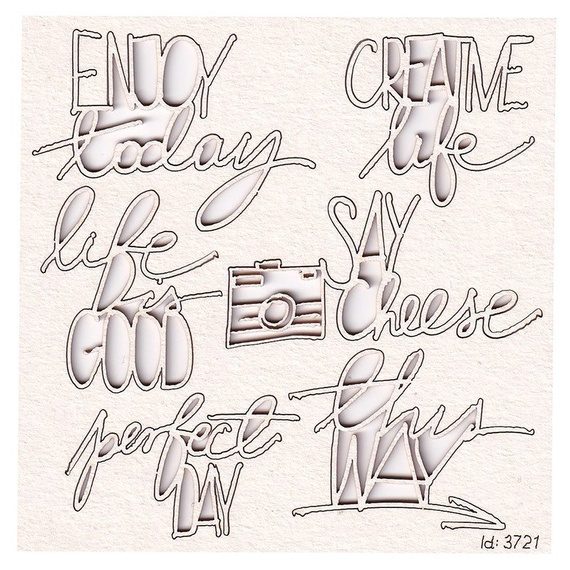 ENJOY
today
CREATIVE
life
life
is
GOOD
SAY
cheese
perfect
DAY
this
WAY
Id: 3721